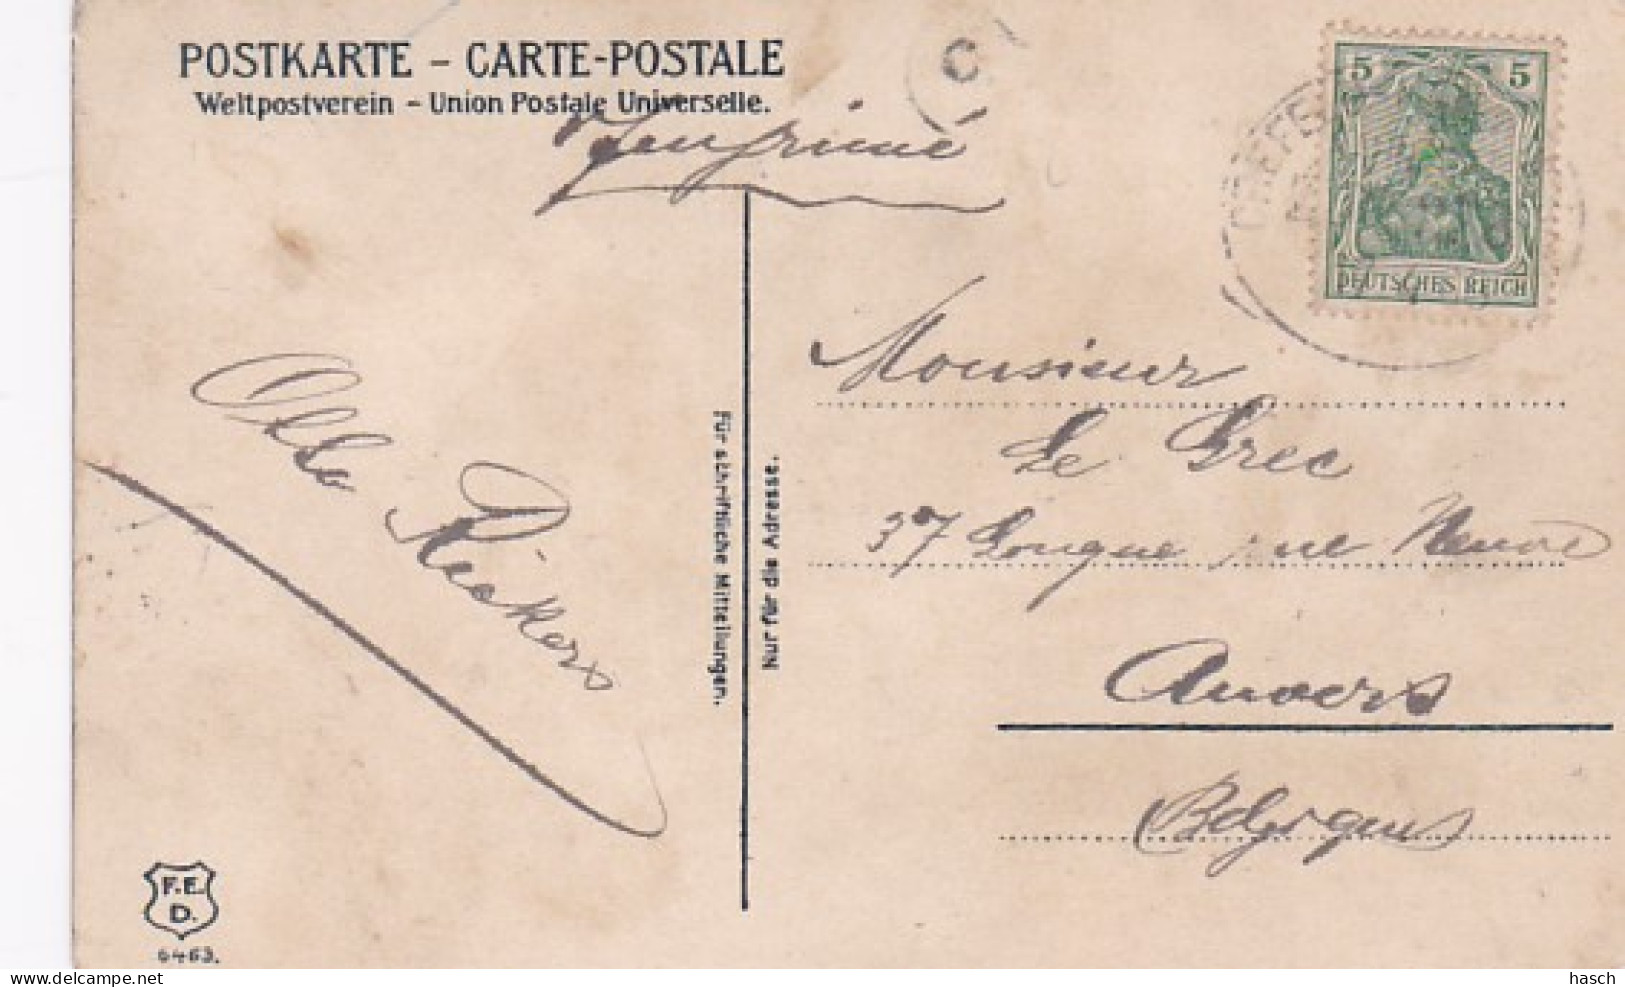 POSTKARTE – CARTE-POSTALE
Weltpostverein – Union Postale Universelle.
C
CREFE
5 5
DEUTSCHES REICH
Monsieur
Le Grec
37 Longue rue Neuve
Anvers
Belgique
Für schriftliche Mitteilungen.
Nur für die Adresse.
Rückers
F.E.
D.
6463.
hasch